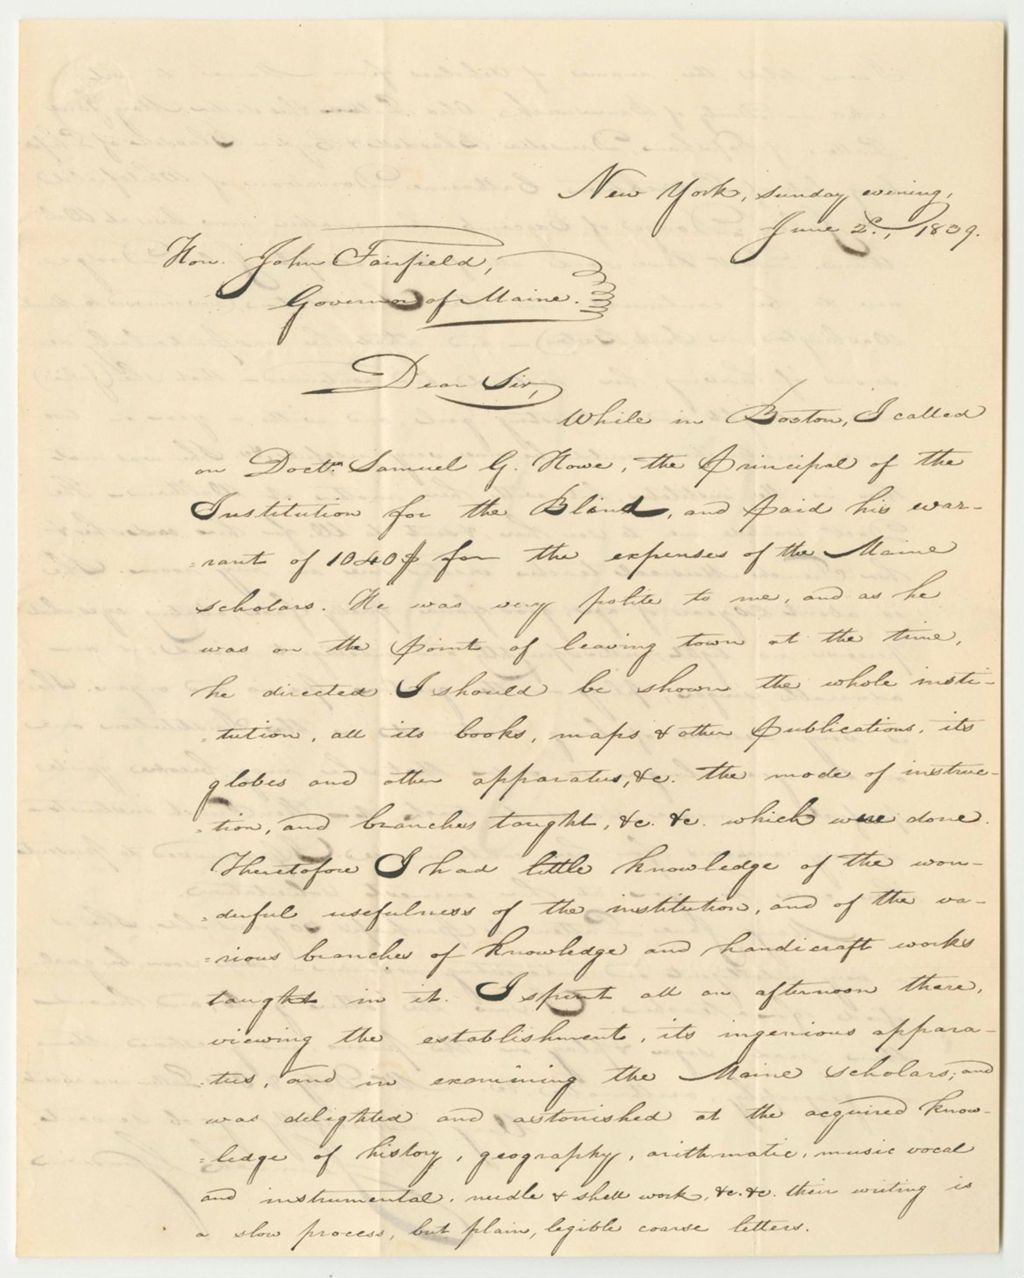 New York, sunday evening,
June 2d., 1839.
Hon. John Fairfield,
Governor of Maine.
Dear Sir,
While in Boston, I called
on Doctr. Samuel G. Howe, the Principal of the
Institution for the Blind, and paid his war-
=rant of 1040$ for the expenses of the Maine
scholars. He was very polite to me, and as he
was on the point of leaving town at the time,
he directed I should be shown the whole insti-
=tution, all its books, maps & other publications, its
globes and other apparatus, &c. the mode of instruc-
=tion, and branches taught, &c. &c. which were done.
Theretofore I had little knowledge of the won-
=derful usefulness of the institution, and of the va-
=rious branches of knowledge and handicraft works
taught in it. I spent all an afternoon there,
viewing the establishment, its ingenious appara-
=tus, and in examining the Maine scholars; and
was delighted and astonished at the acquired know-
=ledge of history, geography, arithmatic, music vocal
and instrumental, needle & shell work, &c. &c. their writing is
a slow process, but plain, legible coarse letters.